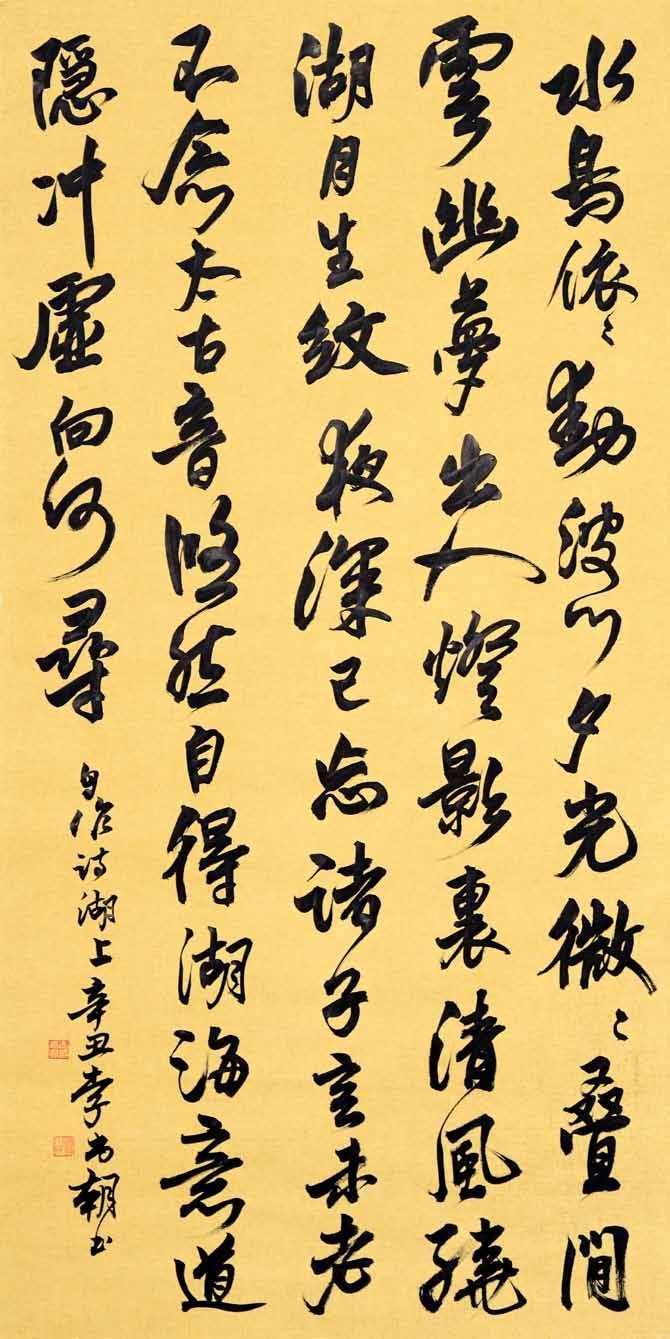 水鳥依〻動波心夕光微〻疊澗
雲幽夢出入燈影裏清風繞
湖月生紋夜深已忘諸子言未老
不念太古音悠然自得湖海意道
隱冲虛向何尋
自作詩湖上辛丑李朝書